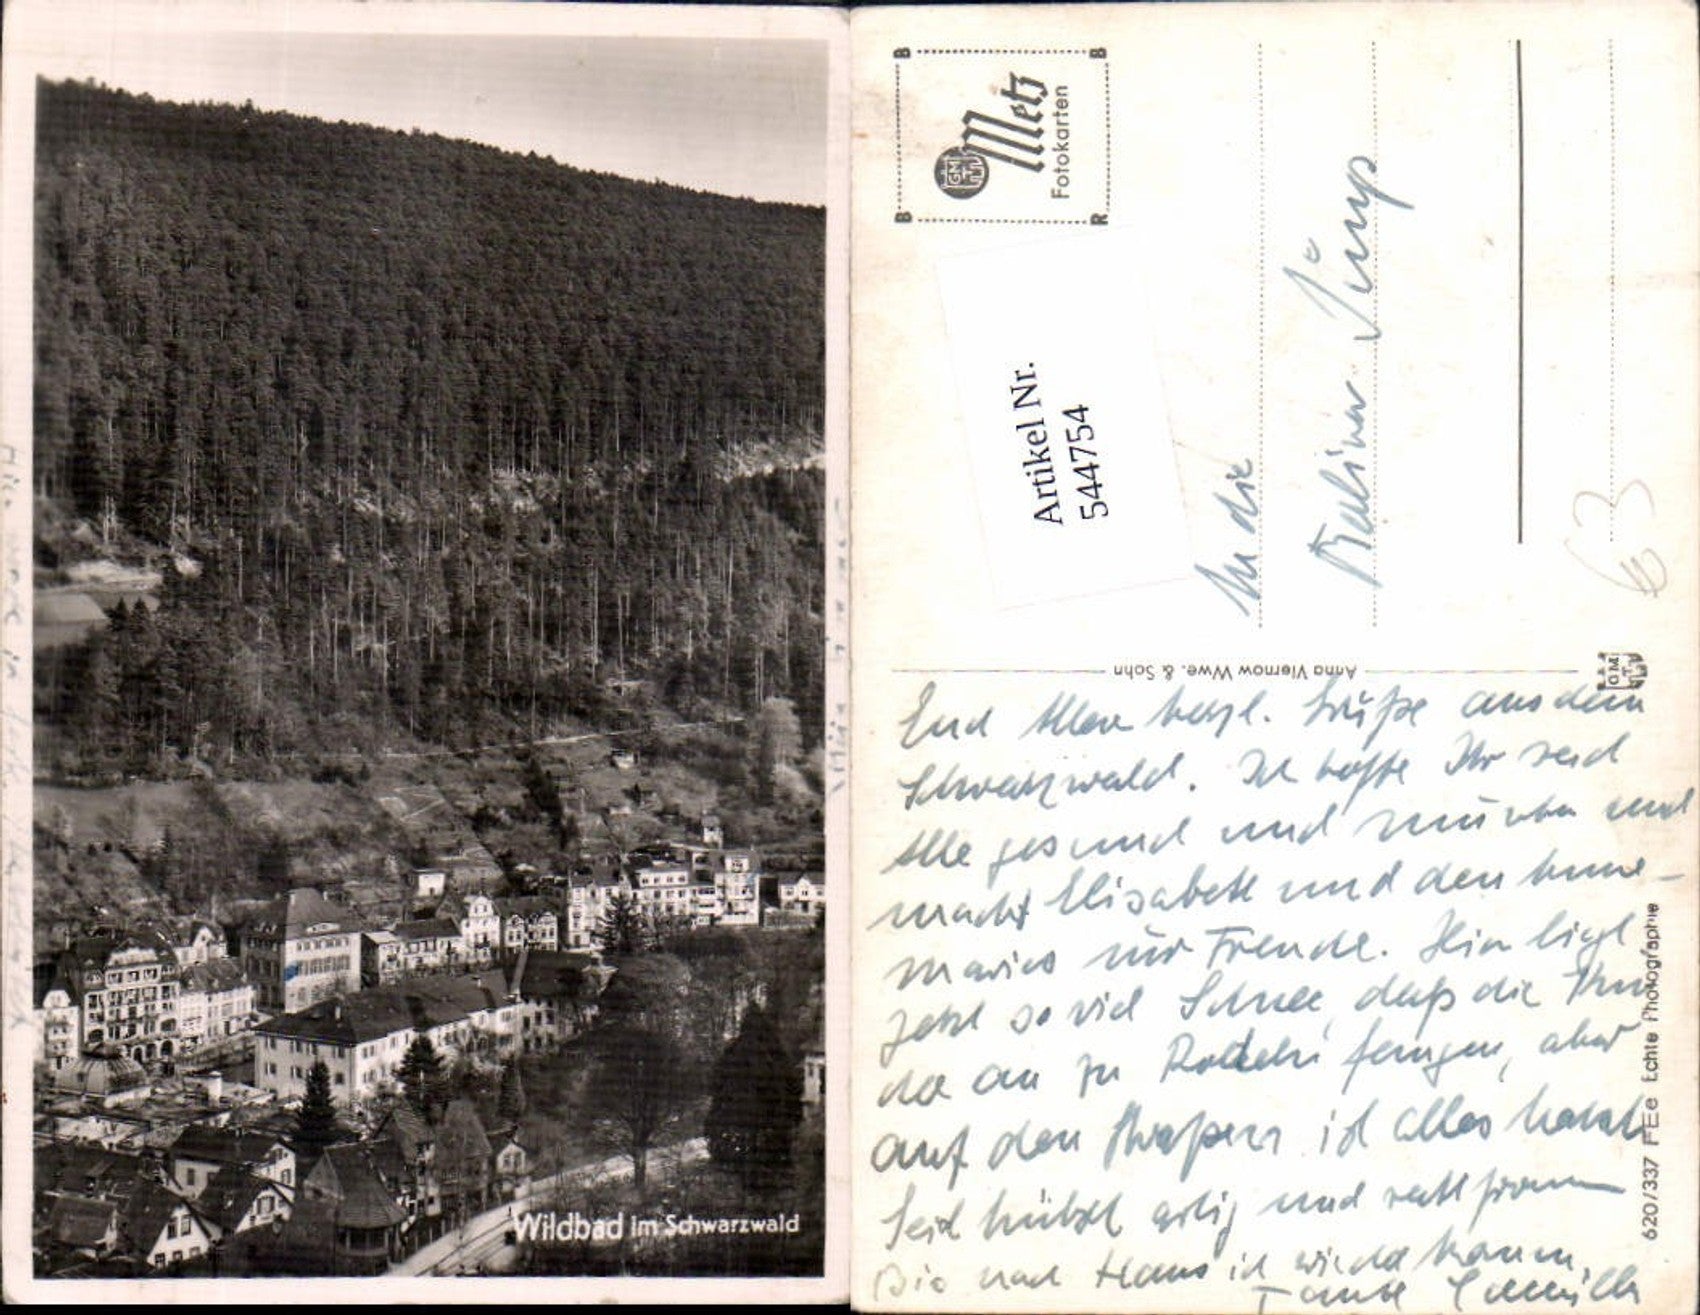 Wildbad im Schwarzwald
Metz
Fotokarten
Artikel Nr.
544754
An die
63
Anna Viernow Wwe. & Sohn
620/337 FEe Echte Photographie
Euch Allen herzl. Grüße aus dem
Schwarzwald. Ich hoffe Ihr seid
Alle gesund und und
macht Elisabeth und den
nur Freude. Hier liegt
jetzt so viel Schnee, daß die
da an zu Rodeln fangen, aber
auf den ist alles
Seid hübsch artig und recht
Bis nach Haus ich wieder komm,
Tante